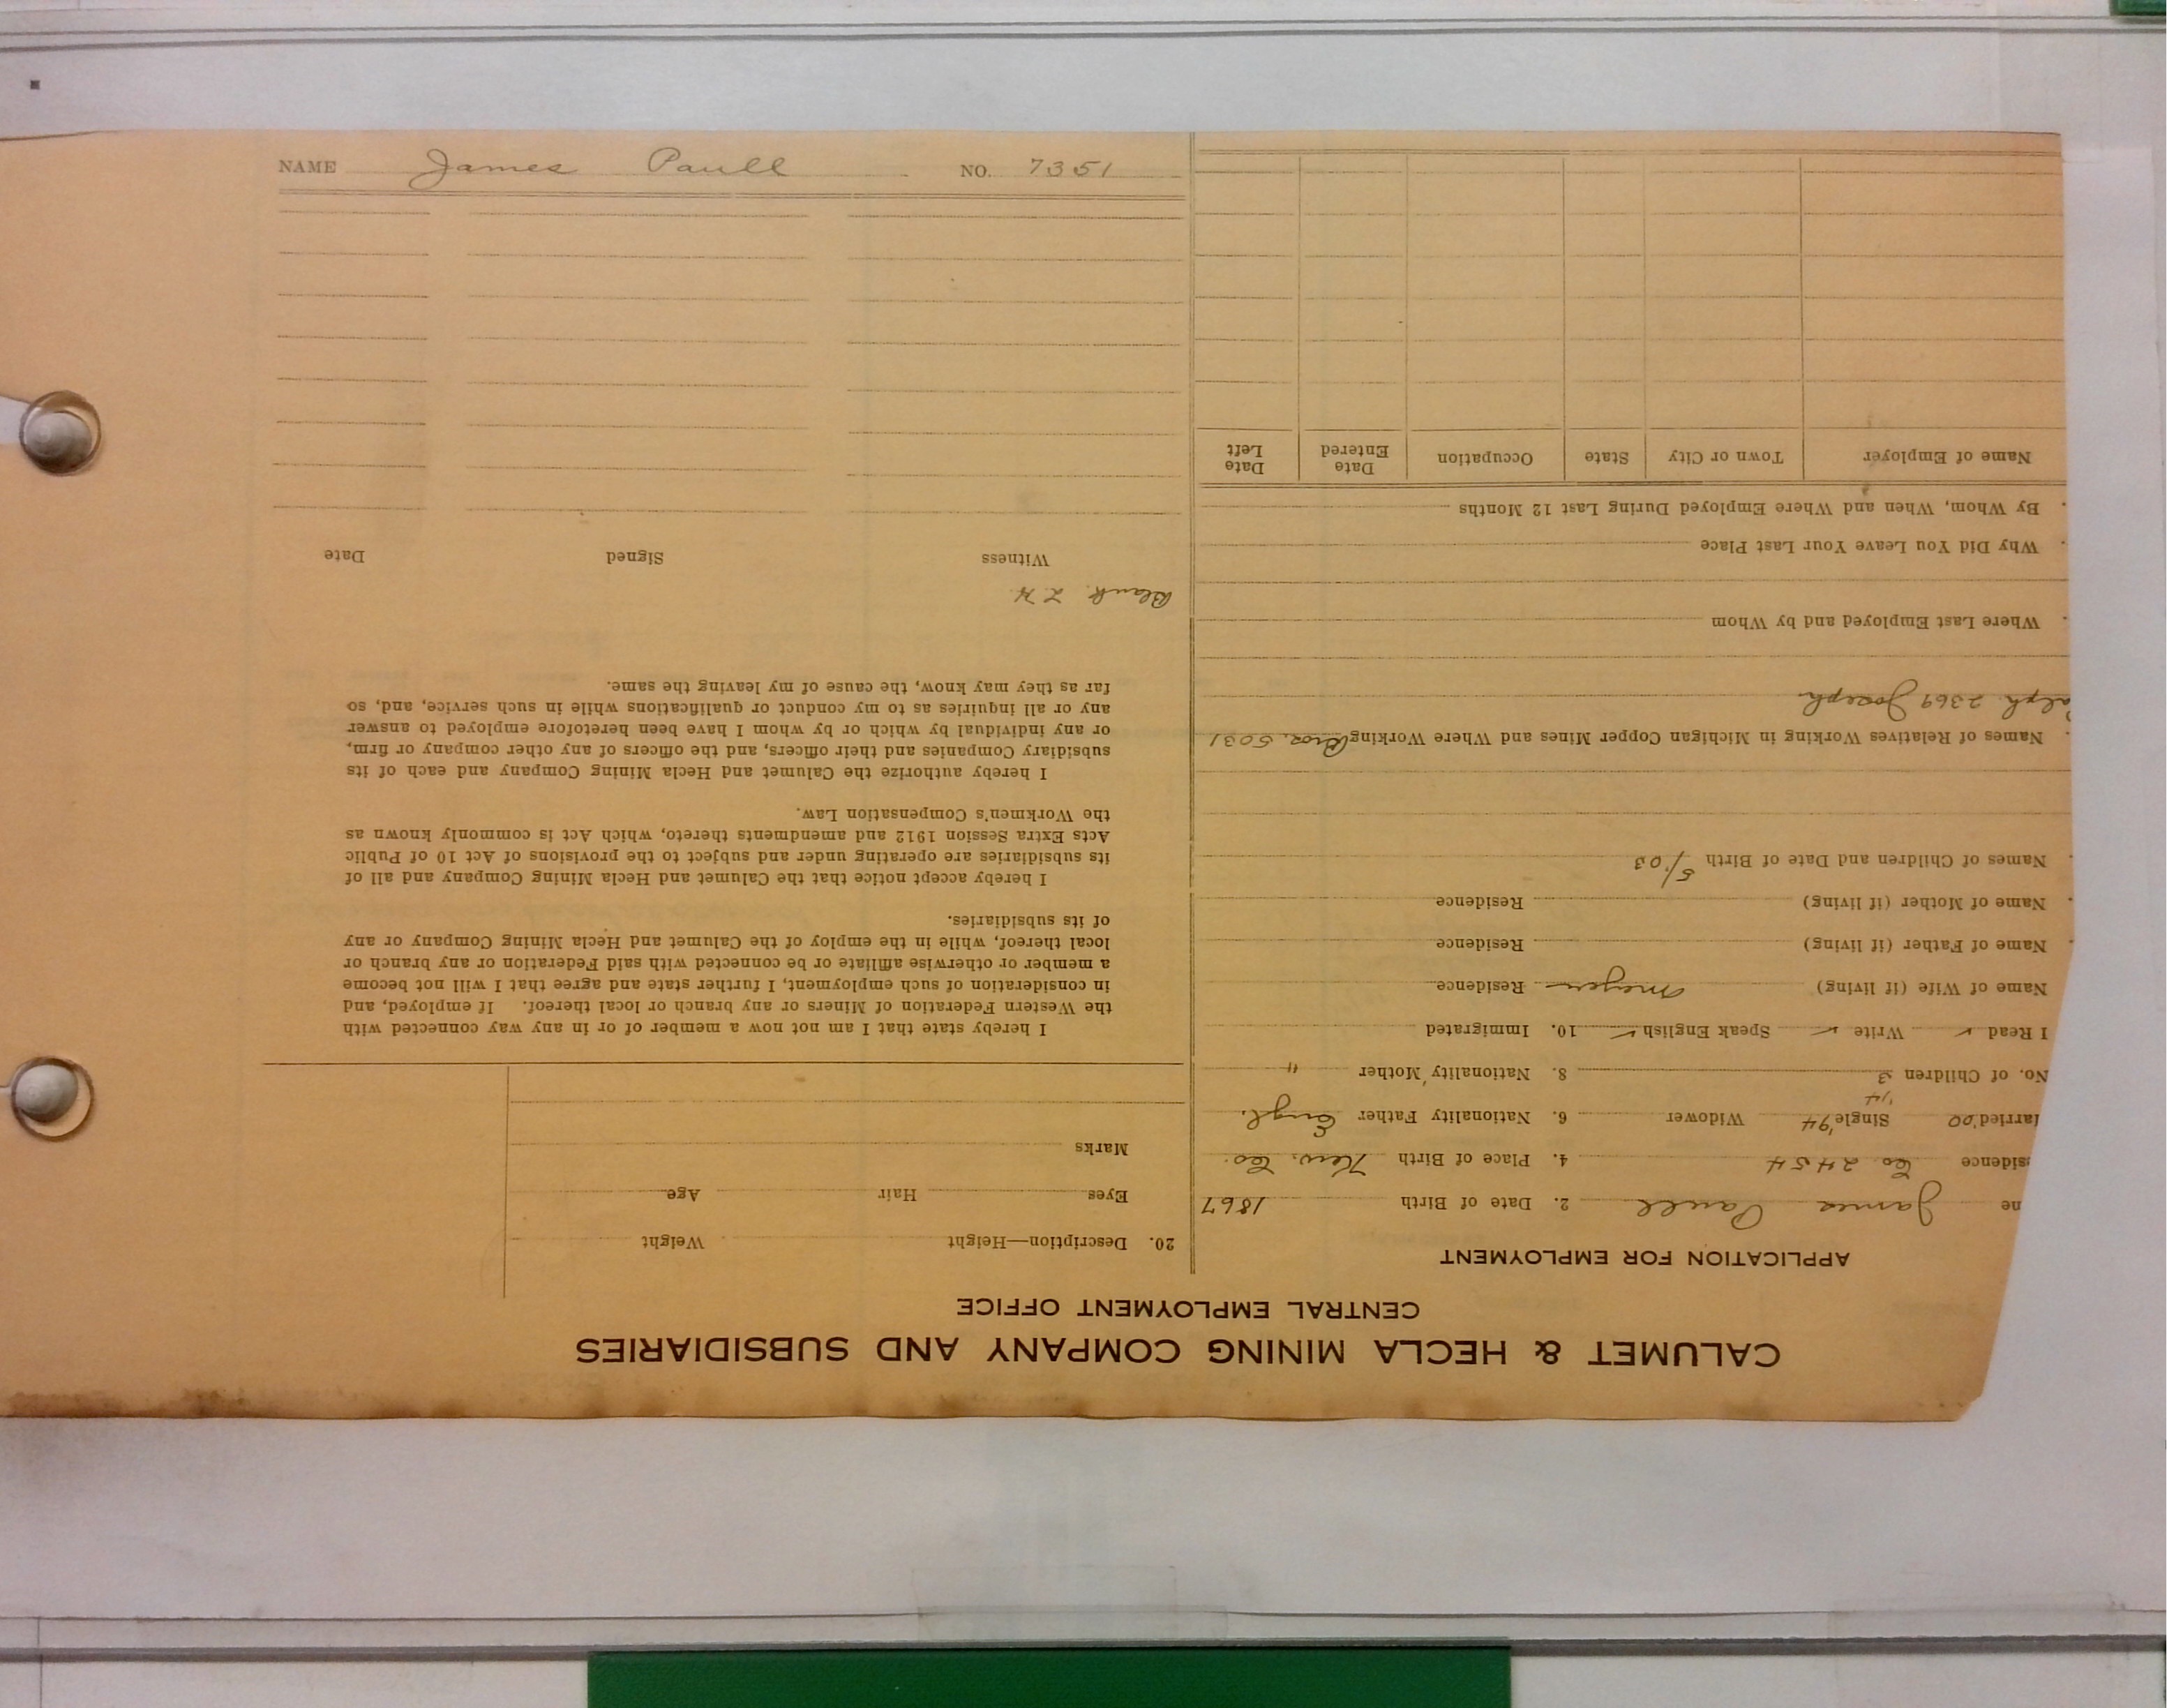 CALUMET & HECLA MINING COMPANY AND SUBSIDIARIES
CENTRAL EMPLOYMENT OFFICE
APPLICATION FOR EMPLOYMENT
ne James Paull 2. Date of Birth 1867
sidence Co 2454 4. Place of Birth Kew. Co.
arried '00 Single '94 Widower 6. Nationality Father Engl.
'14
No. of Children 3 8. Nationality Mother "
I Read ✓ Write ✓ Speak English ✓ 10. Immigrated
Name of Wife (if living) Residence
Name of Father (if living) Residence
Name of Mother (if living) Residence
Names of Children and Date of Birth 5/03
Names of Relatives Working in Michigan Copper Mines and Where Working Bros. 5031
alph 2369 Joseph
Where Last Employed and by Whom
Why Did You Leave Your Last Place
By Whom, When and Where Employed During Last 12 Months
Name of Employer Town or City State Occupation Date Entered Date Left
20. Description—Height Weight
Eyes Hair Age
Marks
I hereby state that I am not now a member of or in any way connected with
the Western Federation of Miners or any branch or local thereof. If employed, and
in consideration of such employment, I further state and agree that I will not become
a member or otherwise affiliate or be connected with said Federation or any branch or
local thereof, while in the employ of the Calumet and Hecla Mining Company or any
of its subsidiaries.
I hereby accept notice that the Calumet and Hecla Mining Company and all of
its subsidiaries are operating under and subject to the provisions of Act 10 of Public
Acts Extra Session 1912 and amendments thereto, which Act is commonly known as
the Workmen's Compensation Law.
I hereby authorize the Calumet and Hecla Mining Company and each of its
subsidiary Companies and their officers, and the officers of any other company or firm,
or any individual by which or by whom I have been heretofore employed to answer
any or all inquiries as to my conduct or qualifications while in such service, and, so
far as they may know, the cause of my leaving the same.
Blank
Witness Signed Date
NAME James Paull NO. 7351